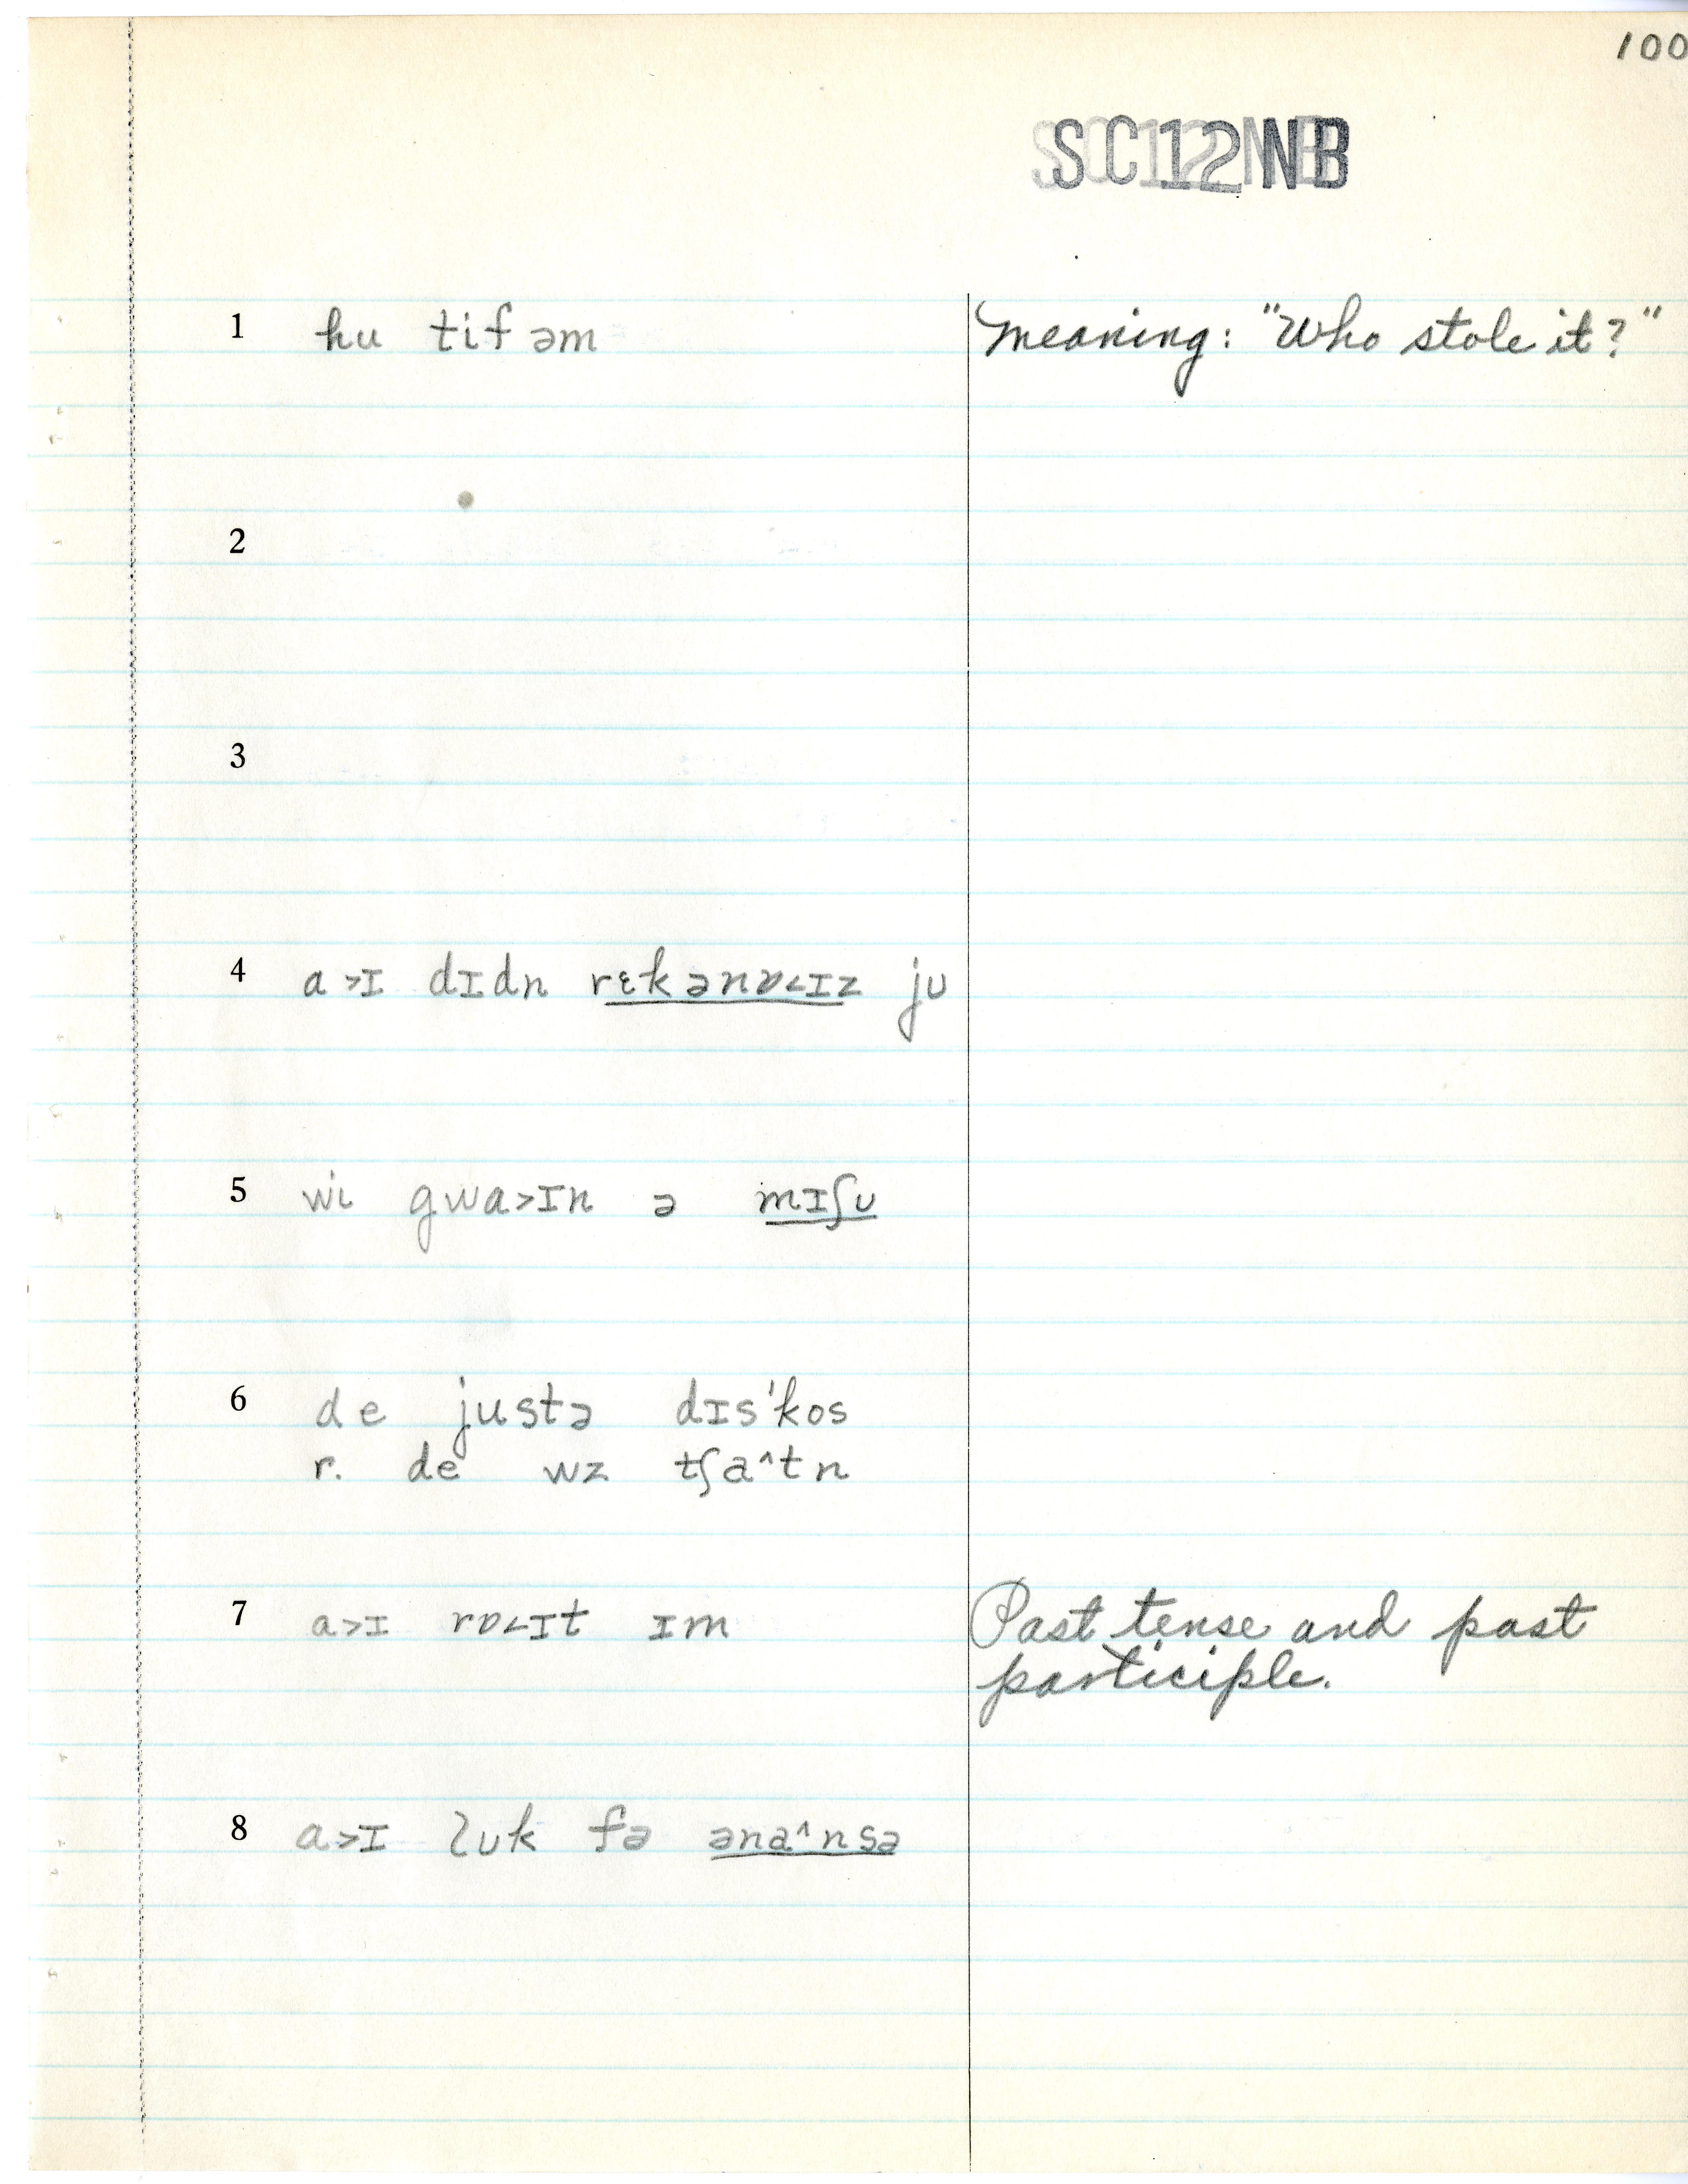 100
SC12NB
1 hu tif əm Meaning: "Who stole it?"
2
3
4 a>ɪ dɪdn rɛkənɒ<ɪz jʊ
5 wi gwa>ɪn ə mɪʃʊ
6 de justə dɪs'kos
r. de wz tʃa^tn
7 a>ɪ rɒ<ɪt ɪm Past tense and past
participle.
8 a>ɪ lʊk fə əna^nsə